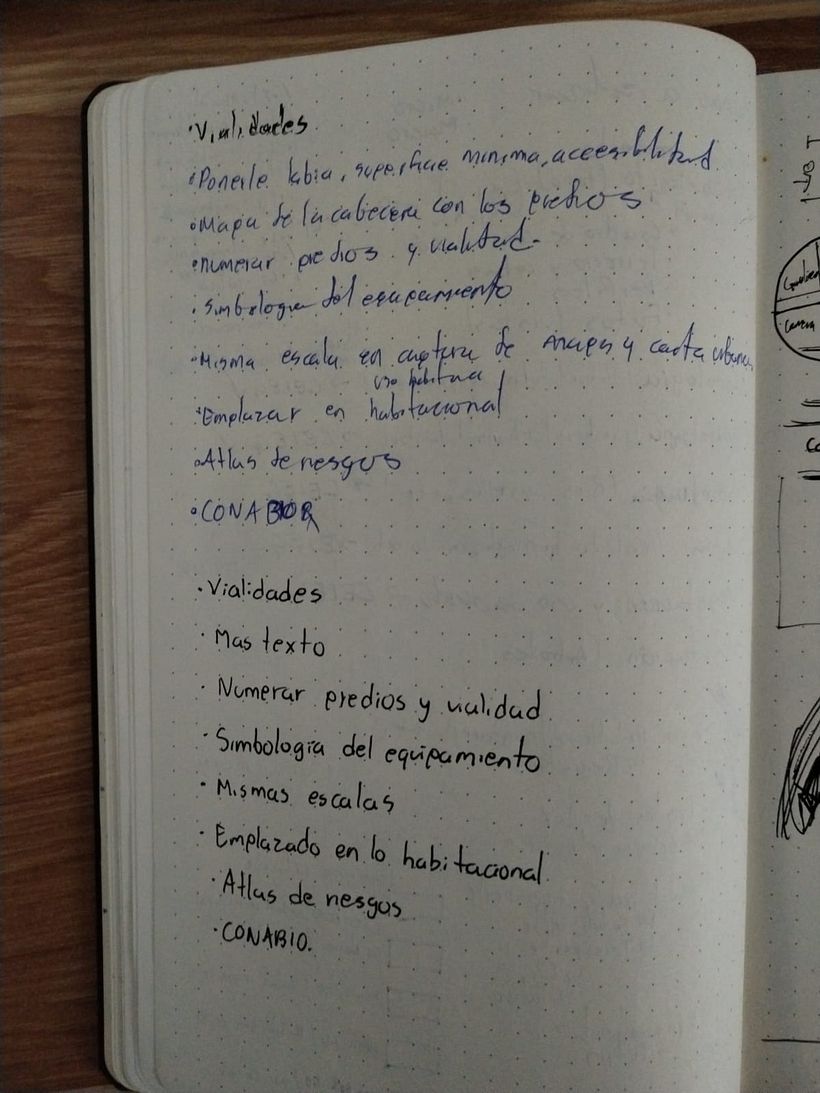 · Vialidades
· Ponerle labia, superficie minima, accesibilidad
· Mapa de la cabecera con los predios
· numerar predios y vialidad-
· Simbologia del equipamiento
· Misma escala en captura de y carta urbana
uso habitacional
· Emplazar en habitacional
· Atlas de riesgos
· CONABIO
· Vialidades
· Mas texto
· Numerar predios y vialidad
· Simbología del equipamiento
· Mismas escalas
· Emplazado en lo habitacional
· Atlas de riesgos
· CONABIO.